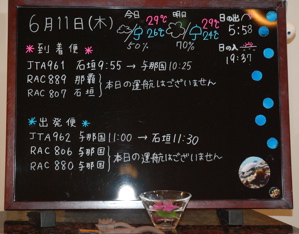 6月11日(木)
今日 29℃ 26℃ 50%
明日 29℃ 24℃ 70%
日の出 5:58
日の入 19:37
*到着便*
JTA961 石垣9:55→与那国10:25
RAC889 那覇
RAC807 石垣
本日の運航はございません
*出発便*
JTA962 与那国11:00→石垣11:30
RAC806 与那国
RAC880 与那国
本日の運航はございません